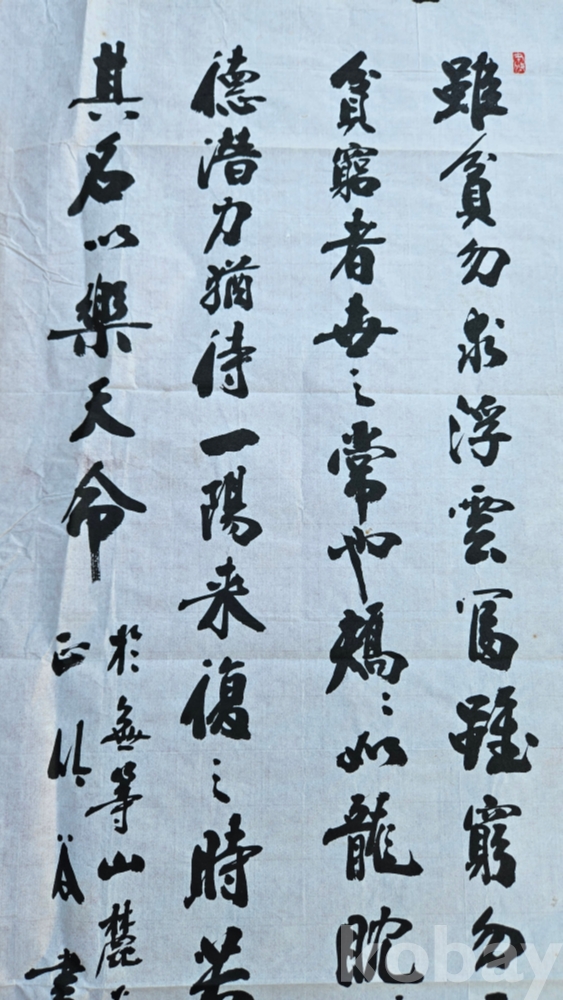 雖貧勿求浮雲富雖窮勿
貧窮者世之常也鵷〻如龍眈
德潛力猶待一陽来復之時若
其名以樂天命
於無等山麓
正 書
kobay